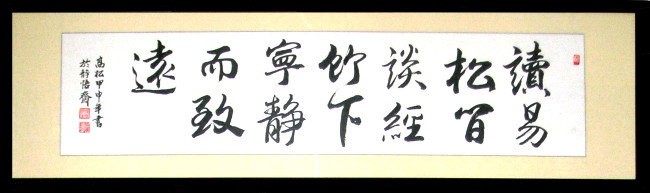 讀易
松間
談經
竹下
寧靜
而致
遠
高松甲申年書
於靜悟齋